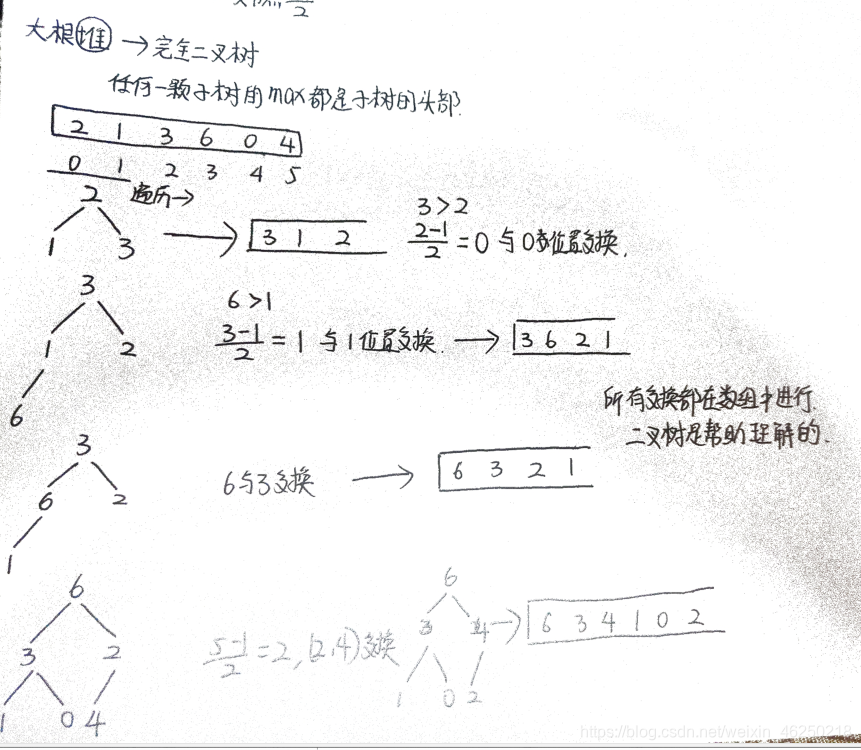 大根堆 → 完全二叉树
任何一颗子树的max都是子树的头部.
2 1 3 6 0 4
0 1 2 3 4 5
遍历→
2
1 3
→ 3 1 2
3>2
2-1/2 = 0 与0位置交换.
3
1 2
6
6>1
3-1/2 = 1 与1位置交换. → 3 6 2 1
所有交换都在数组中进行.
二叉树是帮助理解的.
3
6 2
1
6与3交换 → 6 3 2 1
6
3 2
1 0 4
5-1/2 = 2, (2,4)交换
6
3 4
1 0 2
→ 6 3 4 1 0 2
https://blog.csdn.net/weixin_46250218